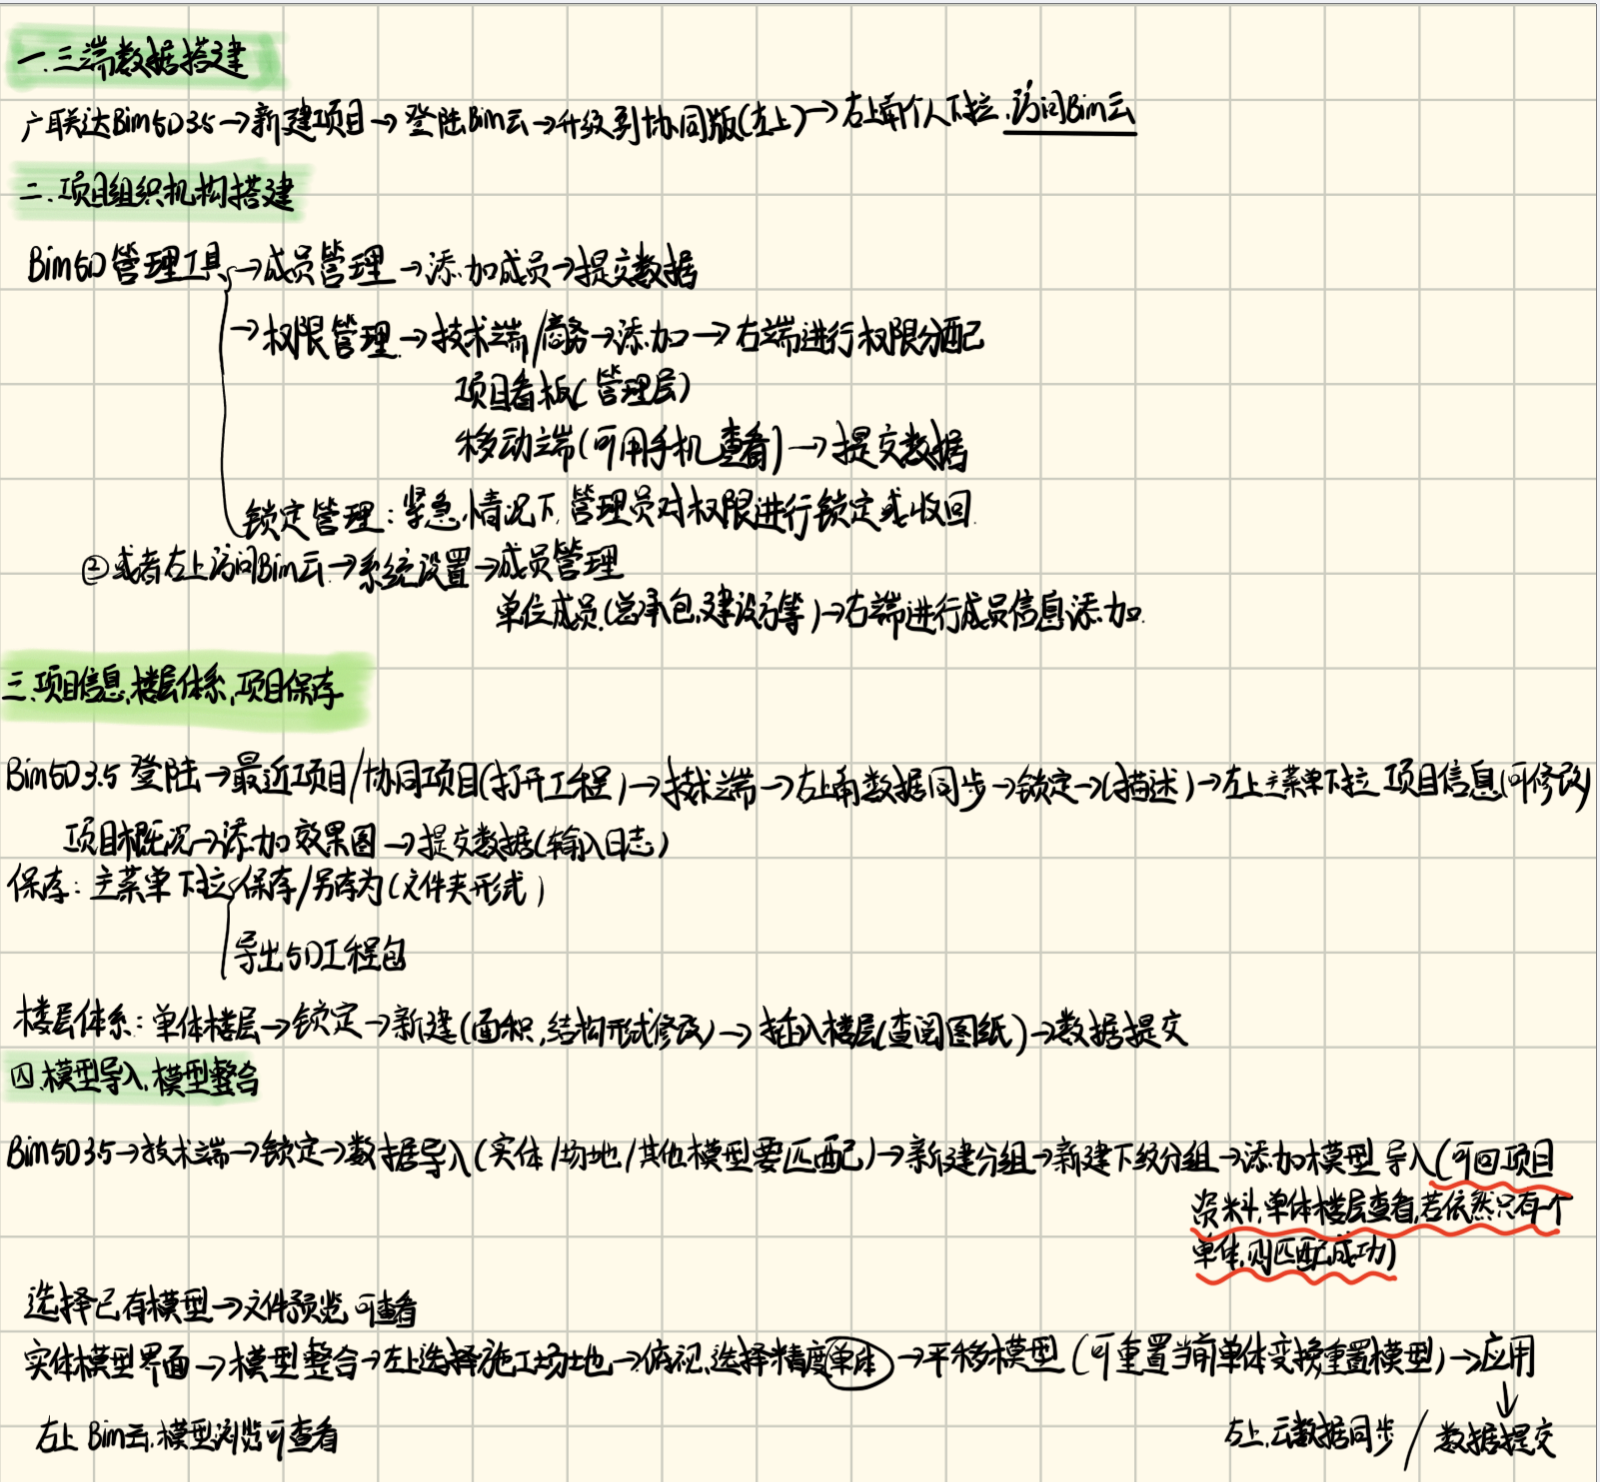 一.三端数据搭建
广联达Bim5D3.5→新建项目→登陆Bim云→升级到协同版(左上)→右上角个人下拉.访问Bim云
二.项目组织机构搭建
Bim5D管理工具→成员管理→添加成员→提交数据
→权限管理→技术端/商务→添加→右端进行权限分配
项目看板(管理层)
移动端(可用手机查看)→提交数据
锁定管理:紧急情况下,管理员对权限进行锁定或收回.
②或者右上访问Bim云→系统设置→成员管理
单位成员.(总承包,建设方等)→右端进行成员信息添加.
三.项目信息,楼层体系,项目保存
Bim5D3.5 登陆→最近项目/协同项目(打开工程)→技术端→左上角数据同步→锁定→(描述)→左上主菜单下拉 项目信息(可修改)
项目概况→添加效果图→提交数据(输入日志)
保存:主菜单下拉 保存/另存为(文件夹形式)
导出5D工程包
楼层体系:单体楼层→锁定→新建(面积,结构形式修改)→插入楼层(查阅图纸)→数据提交
四.模型导入,模型整合
Bim5D3.5→技术端→锁定→数据导入(实体/场地/其他模型要匹配)→新建分组→新建下级分组→添加模型 导入(可回项目
资料,单体楼层查看,若依然只有一个
单体,则匹配成功)
选择已有模型→文件预览 可查看
实体模型界面→模型整合→左上选择施工场地→俯视,选择精度单体→平移模型(可重置当前单体变换,重置模型)→应用
↓
右上 Bim云.模型浏览可查看
左上.云数据同步/数据提交